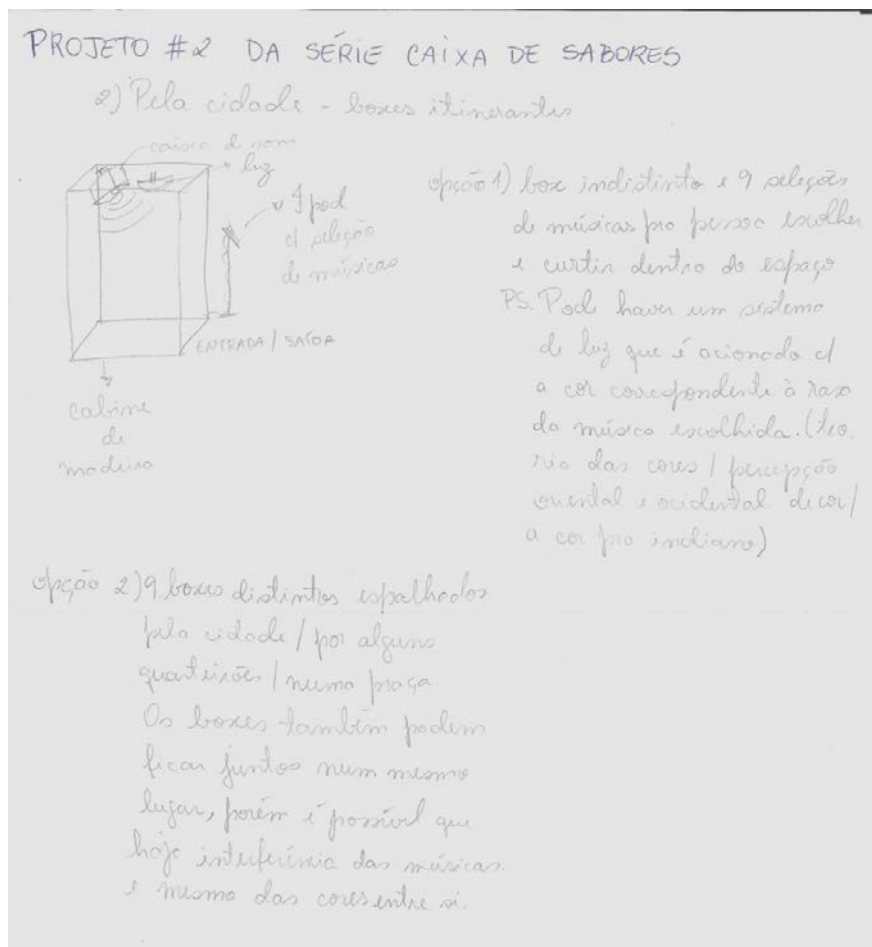 PROJETO #2 DA SÉRIE CAIXA DE SABORES
2) Pela cidade - boxes itinerantes
caixa d som
luz
Ipod
c/ seleção
de músicas
ENTRADA / SAÍDA
cabine
de
madeira
opção 1) box indistinto e 9 seleções
de músicas pra pessoa escolher
e curtir dentro do espaço
PS. Pode haver um sistema
de luz que é acionado c/
a cor correspondente à rasa
da música escolhida. (teo
ria das cores / percepção
oriental e ocidental de cor /
a cor pro indiano)
opção 2) 9 boxes distintos espalhados
pela cidade / por alguns
quarteirões / numa praça.
Os boxes também podem
ficar juntos num mesmo
lugar, porém é possível que
haja interferência das músicas
e mesmo das cores entre si.